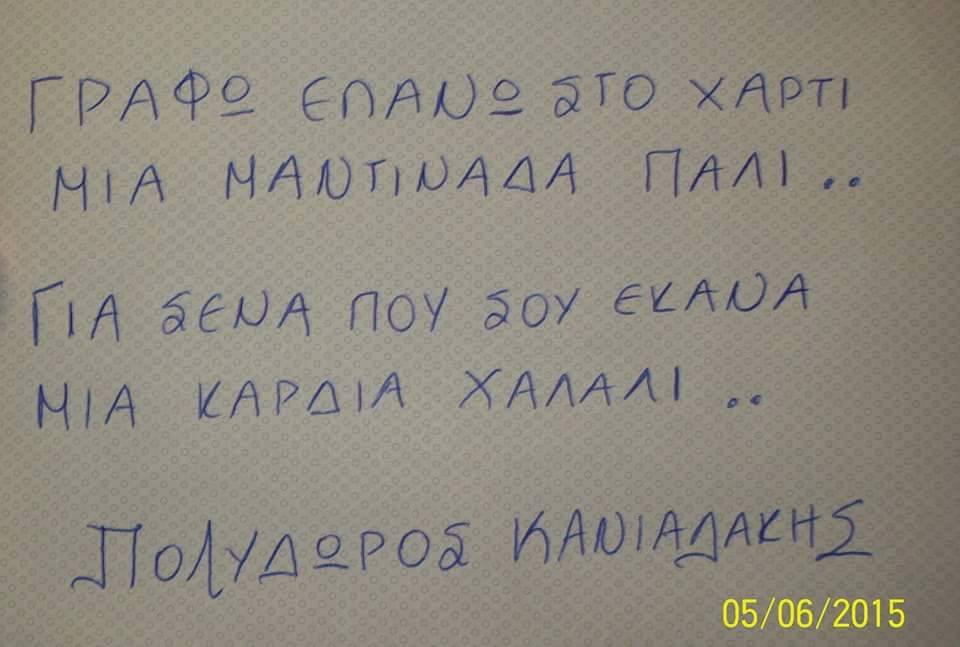 ΓΡΑΦΩ ΕΠΑΝΩ ΣΤΟ ΧΑΡΤΙ
ΜΙΑ ΜΑΝΤΙΝΑΔΑ ΠΑΛΙ ..
ΓΙΑ ΣΕΝΑ ΠΟΥ ΣΟΥ ΕΚΑΝΑ
ΜΙΑ ΚΑΡΔΙΑ ΧΑΛΑΛΙ ..
ΠΟΛΥΔΩΡΟΣ ΚΑΝΙΑΔΑΚΗΣ
05/06/2015